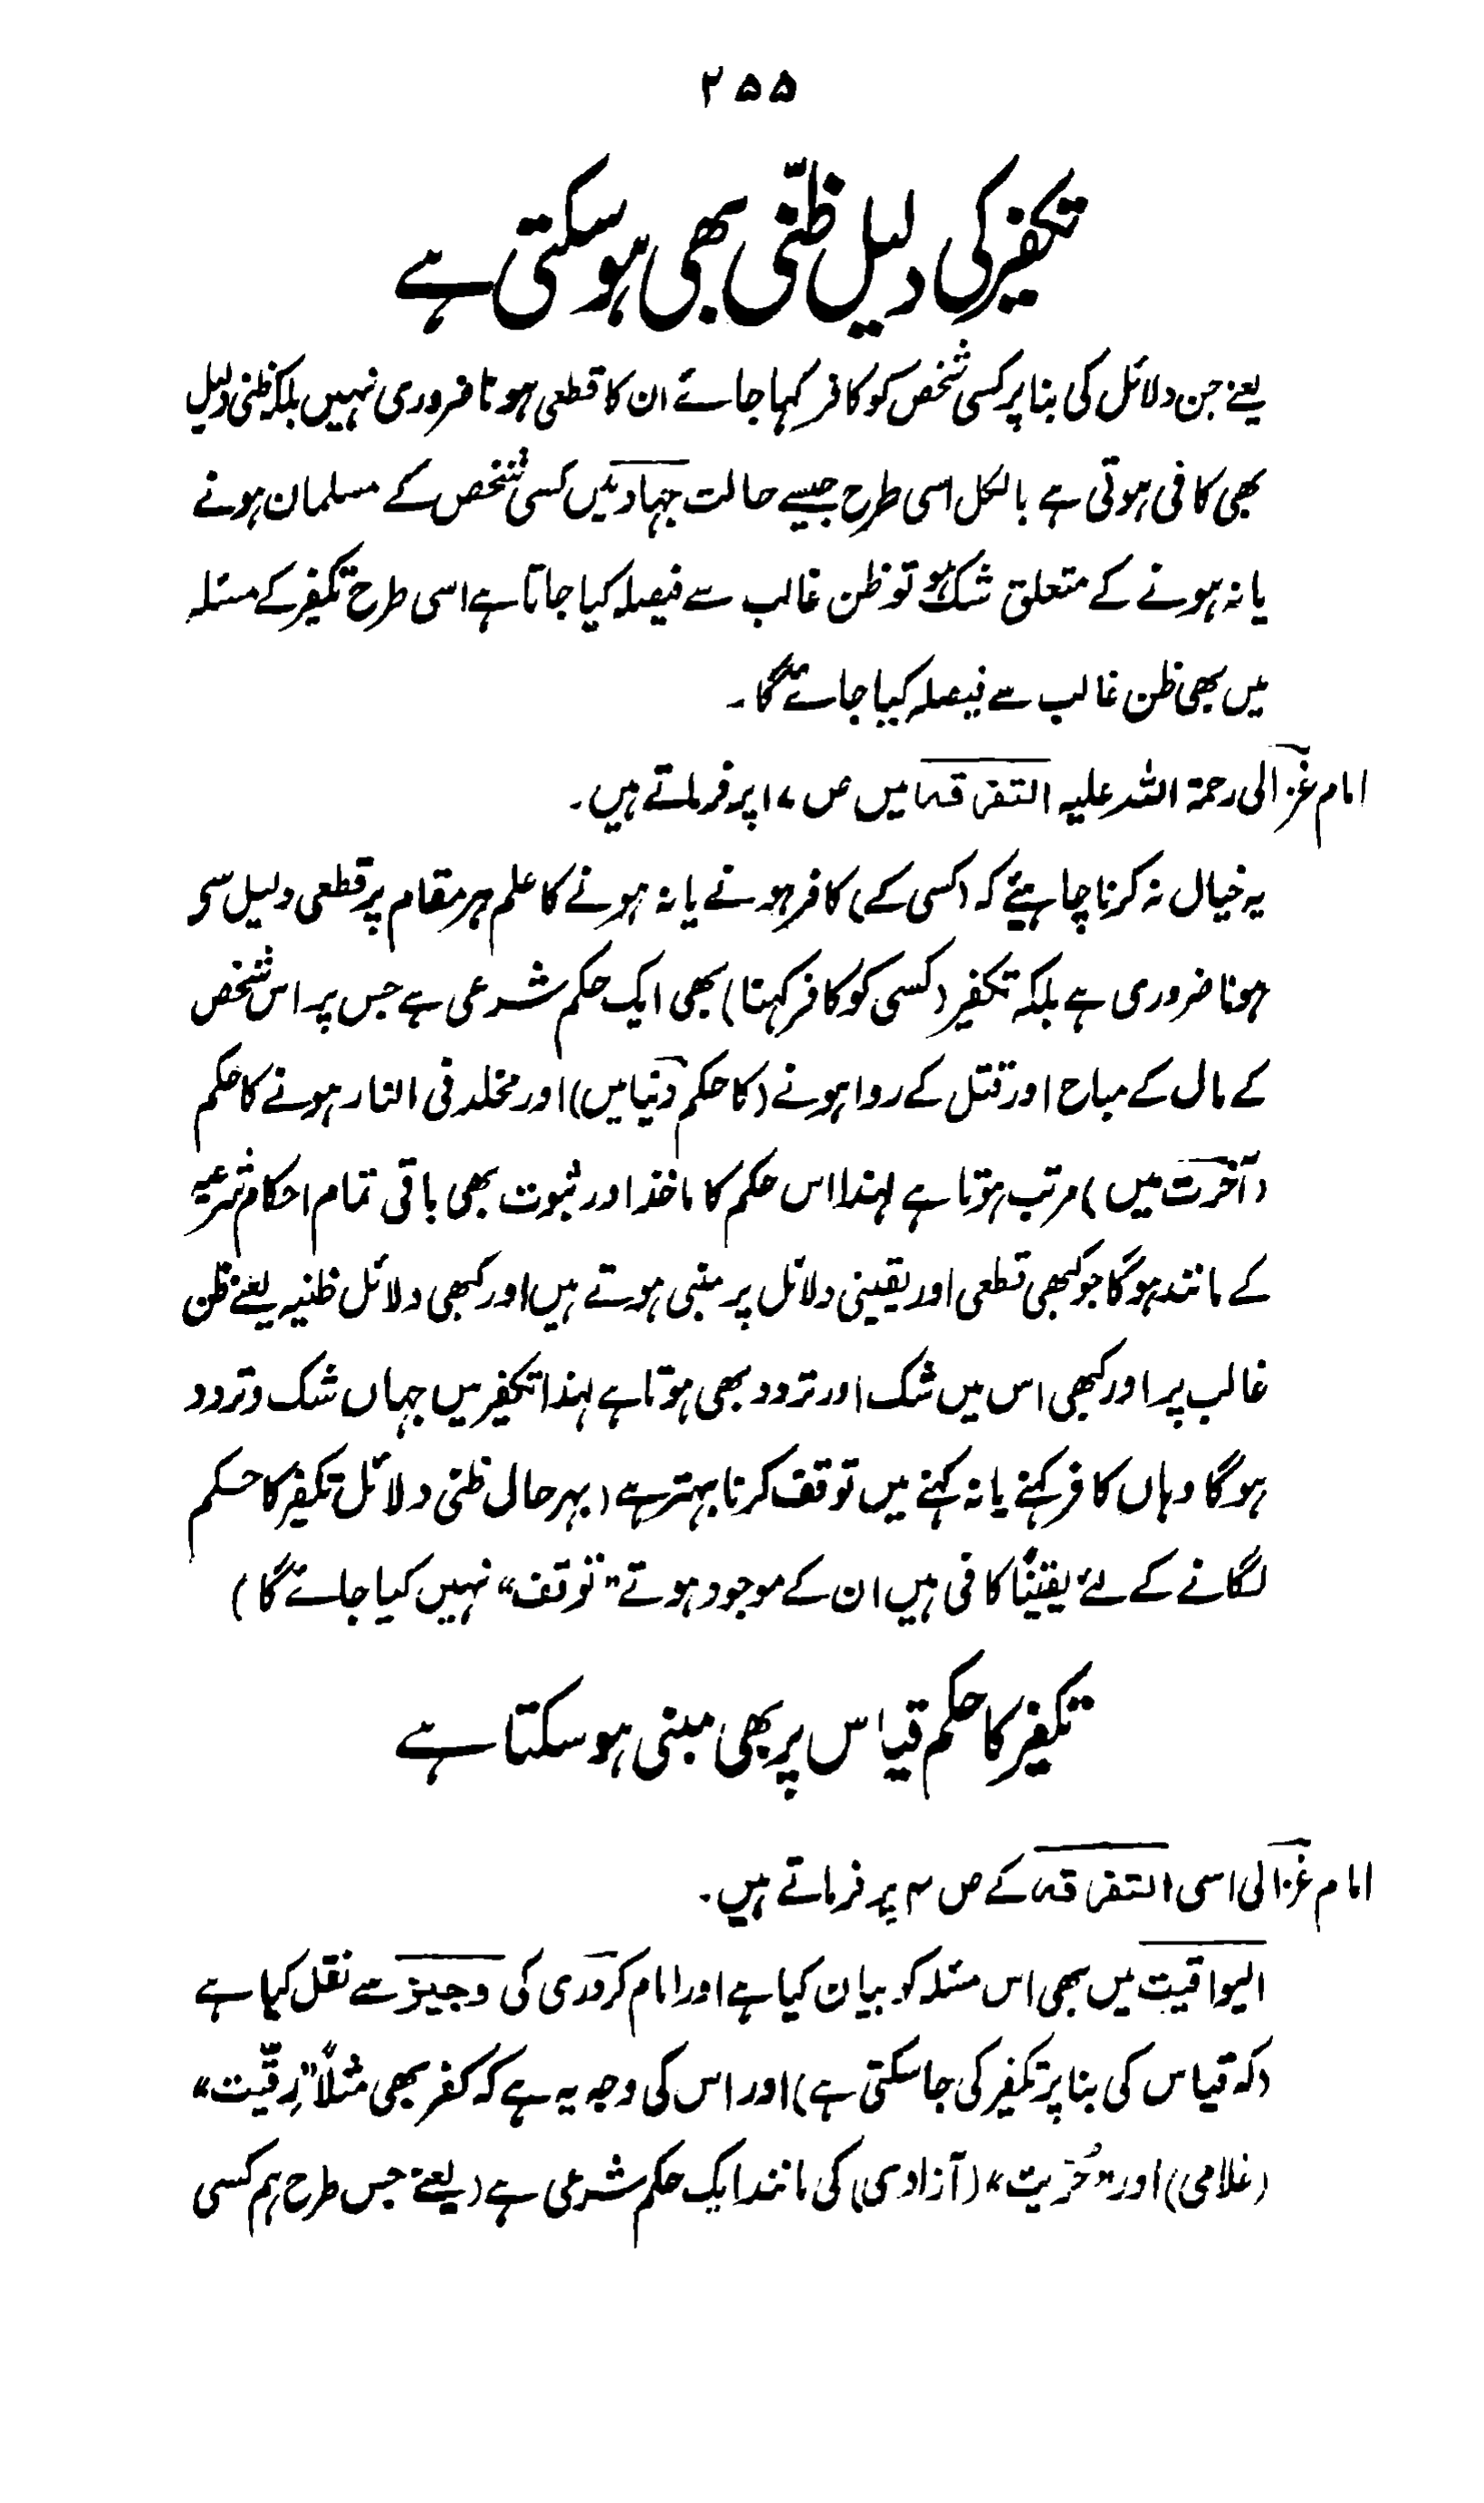 ۲۵۵
تکفیر کی دلیل ظنّی بھی ہو سکتی ہے
یعنے جن دلائل کی بنا پر کسی شخص کو کافر کہا جائے ان کا قطعی ہونا ضروری نہیں بلکہ ظنی دلیل
بھی کافی ہوتی ہے بالکل اسی طرح جیسے حالت جہاد میں کسی شخص کے مسلمان ہونے
یا نہ ہونے کے متعلق شک ہو تو ظن غالب سے فیصلہ کیا جاتا ہے اسی طرح تکفیر کے مسئلہ
میں بھی ظن غالب سے فیصلہ کیا جائے گا۔
امام غزالی رحمۃ اللہ علیہ التفرقہ میں ص ۱۷ پر فرماتے ہیں۔
یہ خیال نہ کرنا چاہیئے کہ (کسی کے) کافر ہونے یا نہ ہونے کا علم ہر مقام پر قطعی دلیل سی
ہونا ضروری ہے بلکہ تکفیر (کسی کو کافر کہنا) بھی ایک حکم شرعی ہے جس پر اس شخص
کے مال کے مباح اور قتل کے روا ہونے (کا حکم دنیا میں) اور مخلد فی النار ہونے کا حکم
(آخرت میں) مرتب ہوتا ہے لہذا اس حکم کا ماخذ اور ثبوت بھی باقی تمام احکام شرعیہ
کے مانند ہوگا جو کبھی قطعی اور یقینی دلائل پر مبنی ہوتے ہیں اور کبھی دلائل ظنیہ یعنے ظن
غالب پر اور کبھی اس میں شک اور تردد بھی ہوتا ہے لہذا تکفیر میں جہاں شک و تردد
ہوگا وہاں کافر کہنے یا نہ کہنے میں توقف کرنا بہتر ہے (بہر حال ظنی دلائل تکفیر کا حکم
لگانے کے لئے یقیناً کافی ہیں ان کے موجود ہوتے "توقف" نہیں کیا جائے گا)
تکفیر کا حکم قیاس پر بھی مبنی ہو سکتا ہے
امام غزالی اسی التفرقہ کے ص پر فرماتے ہیں۔
الیواقیت میں بھی اس مسئلہ کو بیان کیا ہے اور امام کردری کی وجیز سے نقل کیا ہے
(کہ قیاس کی بنا پر تکفیر کی جاسکتی ہے) اور اس کی وجہ یہ ہے کہ کفر بھی مثلاً "رِقّیت"
(غلامی) اور "حُرّیت" (آزادی) کی مانند ایک حکم شرعی ہے (یعنے جس طرح ہم کسی